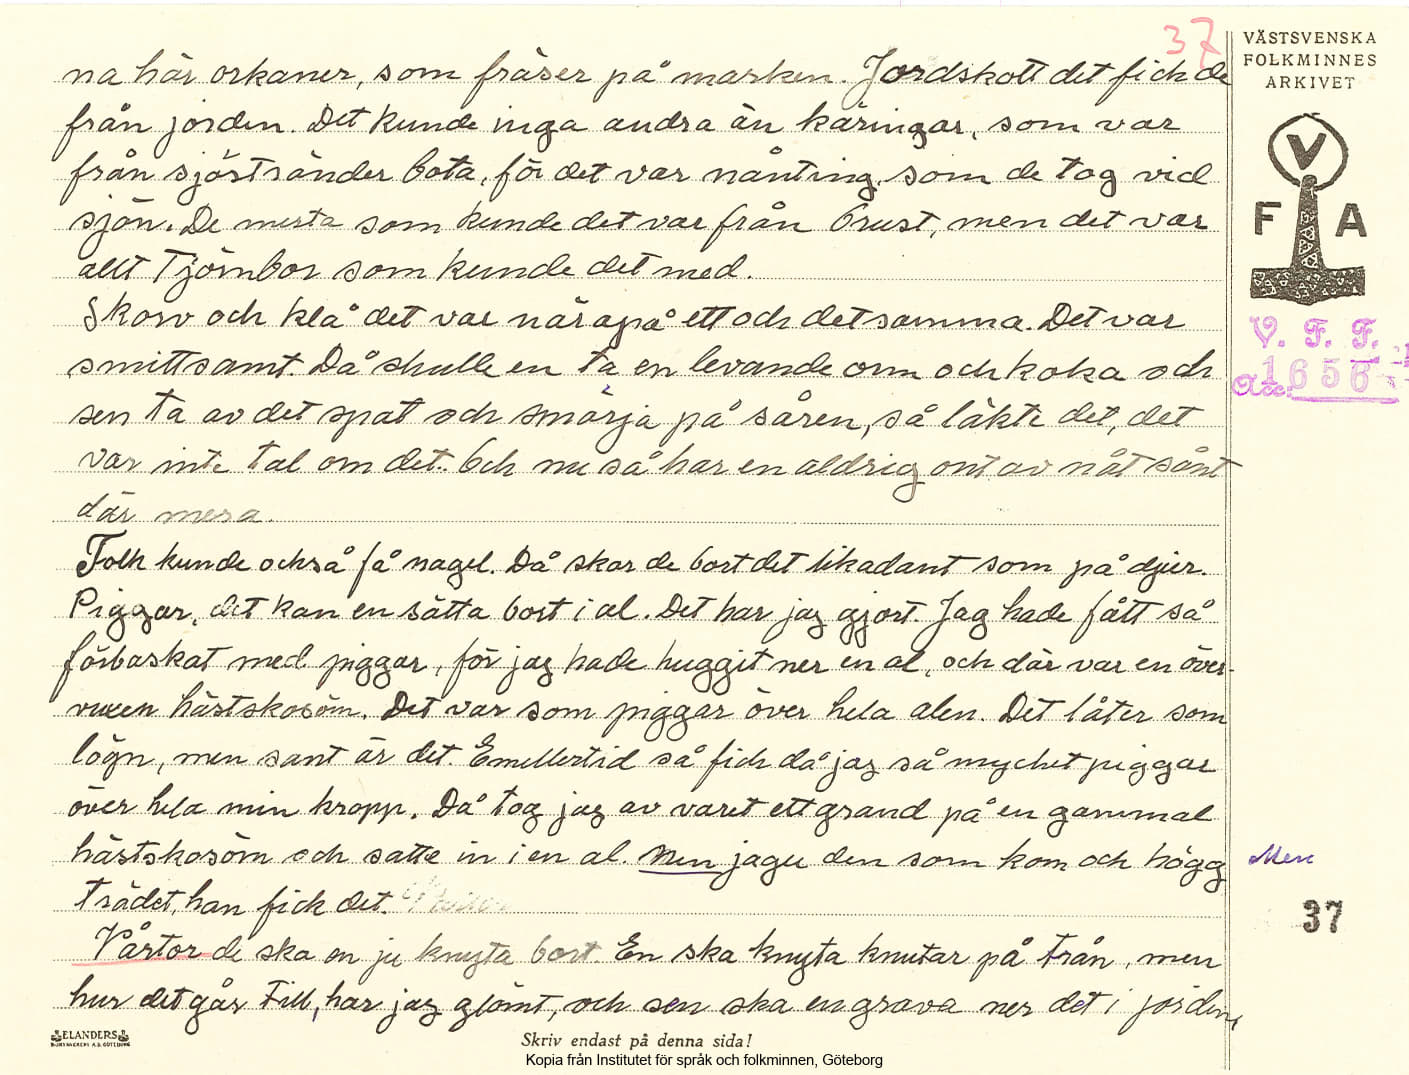 37
VÄSTSVENSKA
FOLKMINNES
ARKIVET
V
F A
V. F. F.
Acc: 1656
na här orkaner, som fräser på marken. Jordskott det fick de
från jorden. Det kunde inga andra än käringar, som var
från sjöstränder bota, för det var nånting, som de tog vid
sjön. De mesta som kunde det var från Orust, men det var
allt Tjörnbor som kunde det med.
Skorv och klå det var närapå ett och detsamma. Det var
smittsamt. Då skulle en ta en levande orm och koka och
sen ta av det spat och smörja på såren, så läkte det, det
var inte tal om det. Och nu så har en aldrig ont av nåt sånt
där mera.
Folk kunde också få nagel. Då skar de bort det likadant som på djur.
Piggar, det kan en sätta bort i al. Det har jag gjort. Jag hade fått så
förbaskat med piggar, för jag hade huggit ner en al, och där var en över-
vuxen hästskosöm. Det var som piggar över hela alen. Det låter som
lögn, men sant är det. Emellertid så fick då jag så mycket piggar
över hela min kropp. Då tog jag av varet ett grand på en gammal
hästskosöm och satte in i en al. Men jagu den som kom och högg
Men
trädet, han fick det.
37
Vårtor de ska en ju knyta bort. En ska knyta knutar på trån, men
hur det går till, har jag glömt, och sen ska en grava ner det i jorden,
ELANDERS
BOKTRYCKERI A.B. GÖTEBORG
Skriv endast på denna sida!
Kopia från Institutet för språk och folkminnen, Göteborg